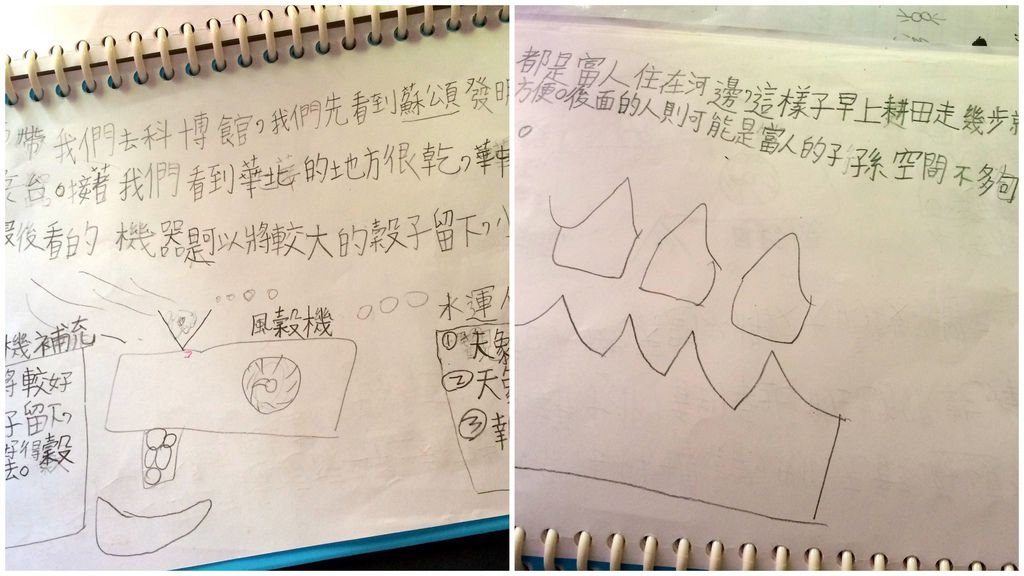 帶我們去科博館，我們先看到蘇頌發明
台。接著我們看到華北的地方很乾，華中
最後看的機器是可以將較大的穀子留下，小
風穀機
機補充
將較好
子留下，
好得穀
去。
水運
①天象
②天
③
都是富人住在河邊，這樣子早上耕田走幾步就
方便。後面的人則可能是富人的子子孫空間不多句
。